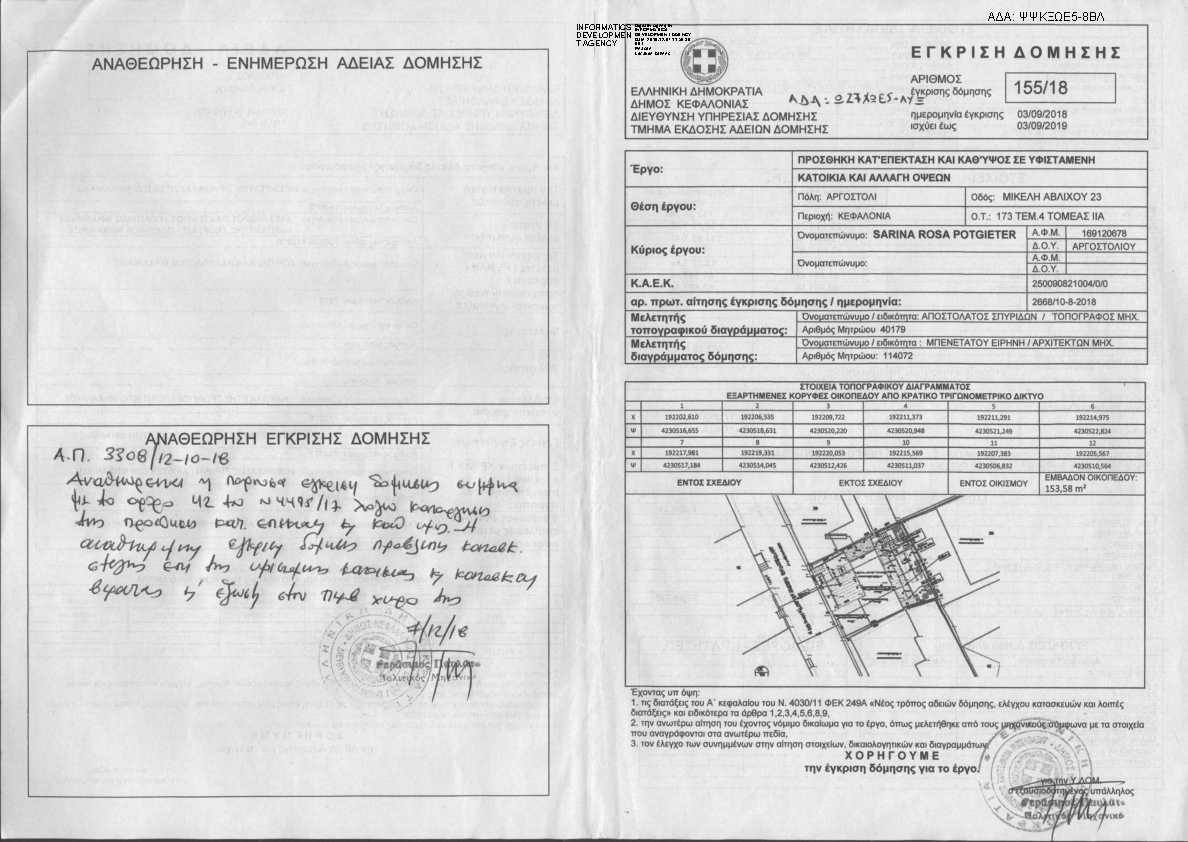 ΑΔΑ: ΨΨΚΞΩΕ5-8ΒΛ
INFORMATICS
DEVELOPMEN
T AGENCY
ΑΝΑΘΕΩΡΗΣΗ - ΕΝΗΜΕΡΩΣΗ ΑΔΕΙΑΣ ΔΟΜΗΣΗΣ
ΑΝΑΘΕΩΡΗΣΗ ΕΓΚΡΙΣΗΣ ΔΟΜΗΣΗΣ
Α.Π. 3308/12-10-18
Αναθεωρείται η παρούσα έγκριση δόμησης σύμφωνα
με το άρθρο 42 του Ν 4495/17 λόγω κατάργησης
της προσθήκης κατ' επέκταση και καθ' ύψος. Η
έγκριση δόμησης προβλέπει κατασκ.
στέγης επί της υφιστάμενης κατοικίας και κατασκευή
βεράντας
7/12/18
Γεράσιμος Παυλάτος
Πολιτικός Μηχανικός
ΕΛΛΗΝΙΚΗ ΔΗΜΟΚΡΑΤΙΑ
ΔΗΜΟΣ ΚΕΦΑΛΟΝΙΑΣ
ΔΙΕΥΘΥΝΣΗ ΥΠΗΡΕΣΙΑΣ ΔΟΜΗΣΗΣ
ΤΜΗΜΑ ΕΚΔΟΣΗΣ ΑΔΕΙΩΝ ΔΟΜΗΣΗΣ
ΑΔΑ:
ΕΓΚΡΙΣΗ ΔΟΜΗΣΗΣ
ΑΡΙΘΜΟΣ
έγκρισης δόμησης 155/18
ημερομηνία έγκρισης 03/09/2018
ισχύει έως 03/09/2019
Έργο: ΠΡΟΣΘΗΚΗ ΚΑΤ'ΕΠΕΚΤΑΣΗ ΚΑΙ ΚΑΘ'ΥΨΟΣ ΣΕ ΥΦΙΣΤΑΜΕΝΗ
ΚΑΤΟΙΚΙΑ ΚΑΙ ΑΛΛΑΓΗ ΟΨΕΩΝ
Θέση έργου: Πόλη: ΑΡΓΟΣΤΟΛΙ Οδός: ΜΙΚΕΛΗ ΑΒΛΙΧΟΥ 23
Περιοχή: ΚΕΦΑΛΟΝΙΑ Ο.Τ.: 173 ΤΕΜ.4 ΤΟΜΕΑΣ ΙΙΑ
Κύριος έργου: Όνοματεπώνυμο: SARINA ROSA POTGIETER Α.Φ.Μ. 169120678
Δ.Ο.Υ. ΑΡΓΟΣΤΟΛΙΟΥ
Όνοματεπώνυμο: Α.Φ.Μ.
Δ.Ο.Υ.
Κ.Α.Ε.Κ. 250090821004/0/0
αρ. πρωτ. αίτησης έγκρισης δόμησης / ημερομηνία: 2668/10-8-2018
Μελετητής
τοπογραφικού διαγράμματος: Όνοματεπώνυμο / ειδικότητα: ΑΠΟΣΤΟΛΑΤΟΣ ΣΠΥΡΙΔΩΝ / ΤΟΠΟΓΡΑΦΟΣ ΜΗΧ.
Αριθμός Μητρώου 40179
Μελετητής
διαγράμματος δόμησης: Όνοματεπώνυμο / ειδικότητα : ΜΠΕΝΕΤΑΤΟΥ ΕΙΡΗΝΗ / ΑΡΧΙΤΕΚΤΩΝ ΜΗΧ.
Αριθμός Μητρώου: 114072
ΣΤΟΙΧΕΙΑ ΤΟΠΟΓΡΑΦΙΚΟΥ ΔΙΑΓΡΑΜΜΑΤΟΣ
ΕΞΑΡΤΗΜΕΝΗΣ ΚΟΡΥΦΕΣ ΟΙΚΟΠΕΔΟΥ ΑΠΟ ΚΡΑΤΙΚΟ ΤΡΙΓΩΝΟΜΕΤΡΙΚΟ ΔΙΚΤΥΟ
1 2 3 4 5 6
Χ 192202,610 192206,535 192209,722 192211,373 192211,291 192214,975
Ψ 4230516,655 4230518,631 4230520,220 4230520,948 4230521,249 4230522,824
7 8 9 10 11 12
Χ 192217,981 192219,331 192220,053 192215,569 192207,383 192205,567
Ψ 4230517,184 4230514,045 4230512,426 4230511,037 4230506,832 4230510,564
ΕΝΤΟΣ ΣΧΕΔΙΟΥ ΕΚΤΟΣ ΣΧΕΔΙΟΥ ΕΝΤΟΣ ΟΙΚΙΣΜΟΥ ΕΜΒΑΔΟΝ ΟΙΚΟΠΕΔΟΥ:
153,58 m²
Έχοντας υπ όψη:
1. τις διατάξεις του Α΄ κεφαλαίου του Ν. 4030/11 ΦΕΚ 249Α «Νέος τρόπος αδειών δόμησης, ελέγχου κατασκευών και λοιπές
διατάξεις» και ειδικότερα τα άρθρα 1,2,3,4,5,6,8,9,
2. την ανωτέρω αίτηση του έχοντος νόμιμο δικαίωμα για το έργο, όπως μελετήθηκε από τους μηχανικούς σύμφωνα με τα στοιχεία
που αναγράφονται στα ανωτέρω πεδία,
3. τον έλεγχο των συνημμένων στην αίτηση στοιχείων, δικαιολογητικών και διαγραμμάτων,
ΧΟΡΗΓΟΥΜΕ
την έγκριση δόμησης για το έργο.
για την Υ.ΔΟΜ.
ο εξουσιοδοτημένος υπάλληλος
Γεράσιμος Παυλάτος
Πολιτικός Μηχανικός